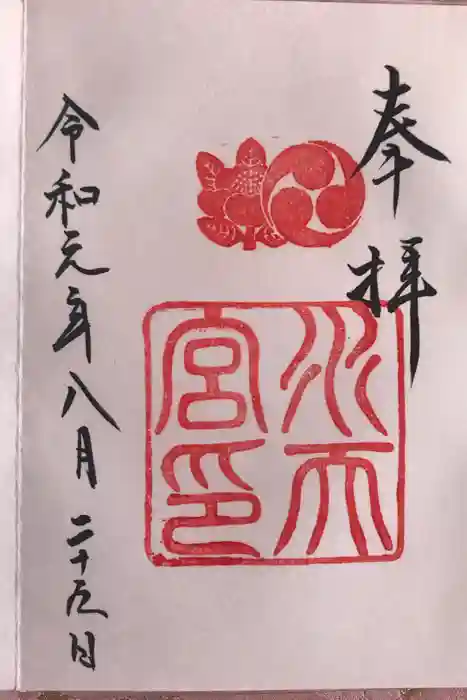 奉拝
水天宮印
令和元年八月二十五日